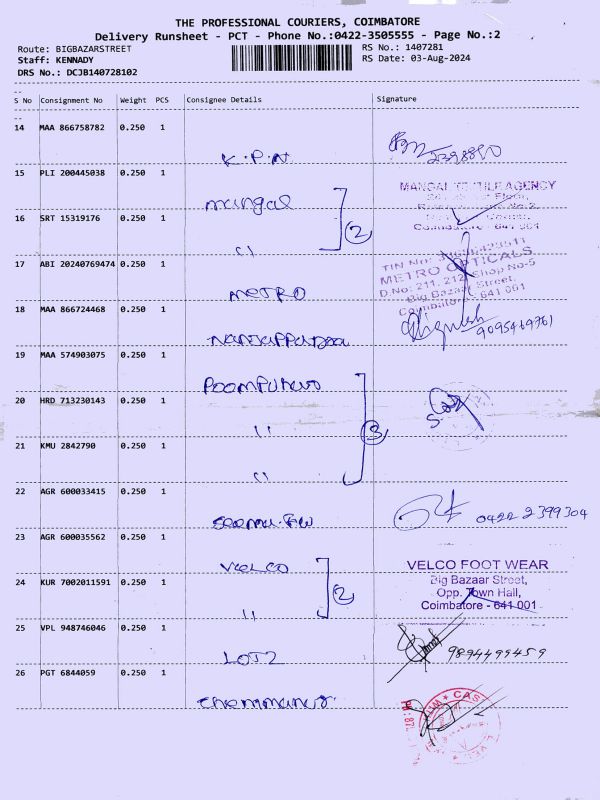 THE PROFESSIONAL COURIERS, COIMBATORE
Delivery Runsheet - PCT - Phone No.:0422-3505555 - Page No.:2
Route: BIGBAZARSTREET
RS No.: 1407281
Staff: KENNADY
RS Date: 03-Aug-2024
DRS No.: DCJB140728102
S No Consignment No Weight PCS Consignee Details Signature
14 MAA 866758782 0.250 1
K.P.N
15 PLI 200445038 0.250 1
Mangal
MANGAL TEXTILE AGENCY
16 SRT 15319176 0.250 1
2
Coimbatore - 641 001
"
17 ABI 20240769474 0.250 1
METRO
TIN No:
METRO OPTICALS
D.No: 211, 212, Shop No-5
Big Bazaar Street,
Coimbatore - 641 001
18 MAA 866724468 0.250 1
9095469761
19 MAA 574903075 0.250 1
20 HRD 713230143 0.250 1
"
3
21 KMU 2842790 0.250 1
"
22 AGR 600033415 0.250 1
0422 2399304
23 AGR 600035562 0.250 1
VELCO
VELCO FOOT WEAR
Big Bazaar Street,
Opp. Town Hall,
Coimbatore - 641 001
24 KUR 7002011591 0.250 1
2
"
25 VPL 948746046 0.250 1
9894499459
26 PGT 6844059 0.250 1
Chemmanur